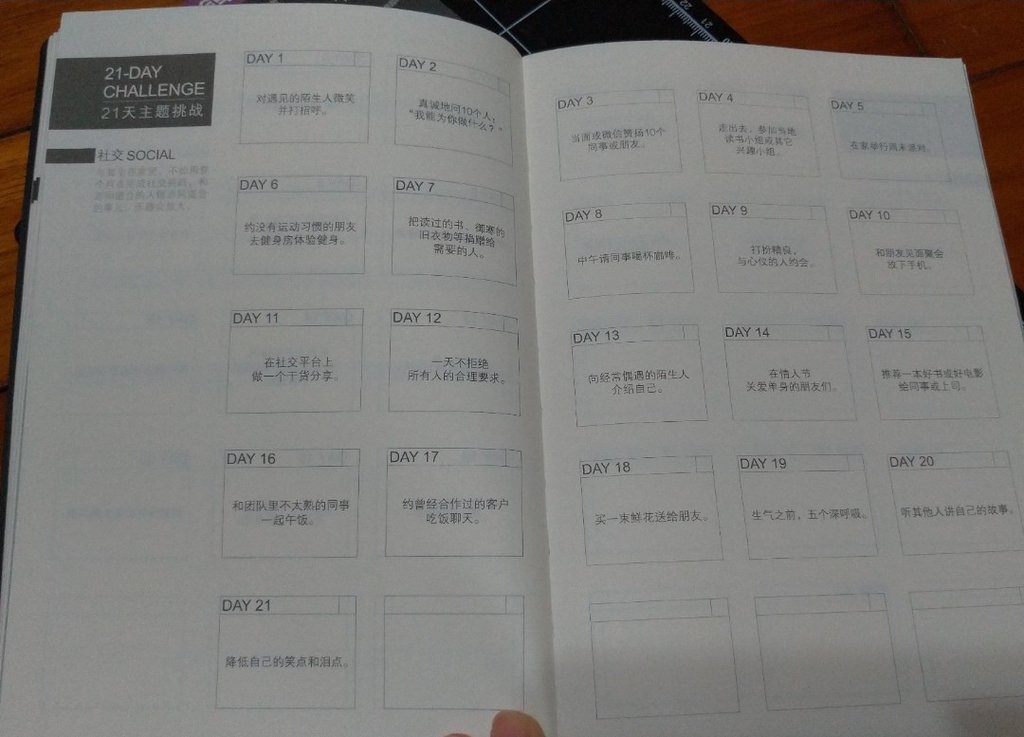 21-DAY
CHALLENGE
21天主题挑战
社交 SOCIAL
DAY 1
对遇见的陌生人微笑
并打招呼。
DAY 2
真诚地问10个人，
“我能为你做什么？”
DAY 3
当面或微信赞扬10个
同事或朋友。
DAY 4
走出去，参加当地
读书小组或其它
兴趣小组。
DAY 5
在家举行周末派对。
DAY 6
约没有运动习惯的朋友
去健身房体验健身。
DAY 7
把读过的书、御寒的
旧衣物等捐赠给
需要的人。
DAY 8
中午请同事喝杯咖啡。
DAY 9
打扮精良，
与心仪的人约会。
DAY 10
和朋友见面聚会
放下手机。
DAY 11
在社交平台上
做一个干货分享。
DAY 12
一天不拒绝
所有人的合理要求。
DAY 13
向经常偶遇的陌生人
介绍自己。
DAY 14
在情人节
关爱单身的朋友们。
DAY 15
推荐一本好书或好电影
给同事或上司。
DAY 16
和团队里不太熟的同事
一起午饭。
DAY 17
约曾经合作过的客户
吃饭聊天。
DAY 18
买一束鲜花送给朋友。
DAY 19
生气之前，五个深呼吸。
DAY 20
听其他人讲自己的故事。
DAY 21
降低自己的笑点和泪点。
22
21